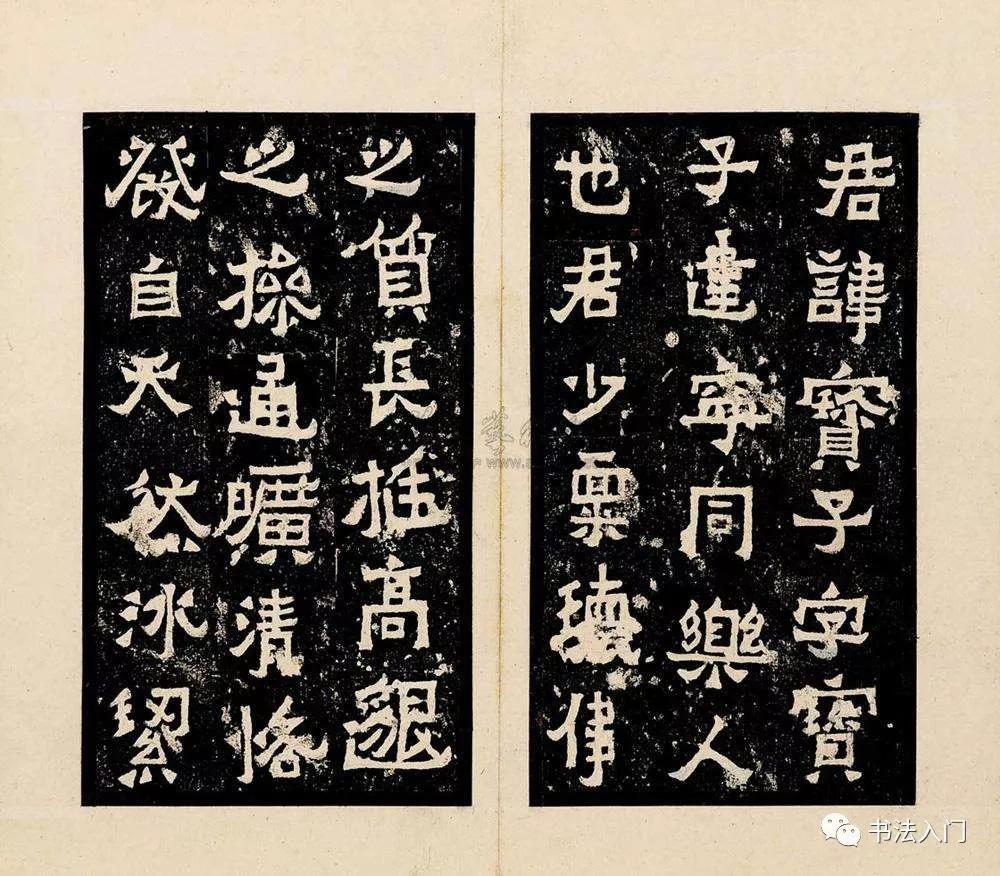 君諱寶子字寶
子建寧同樂人
也君少稟瓌偉
之質長挺高邈
之操通曠清恪
發自天然冰絜
书法入门